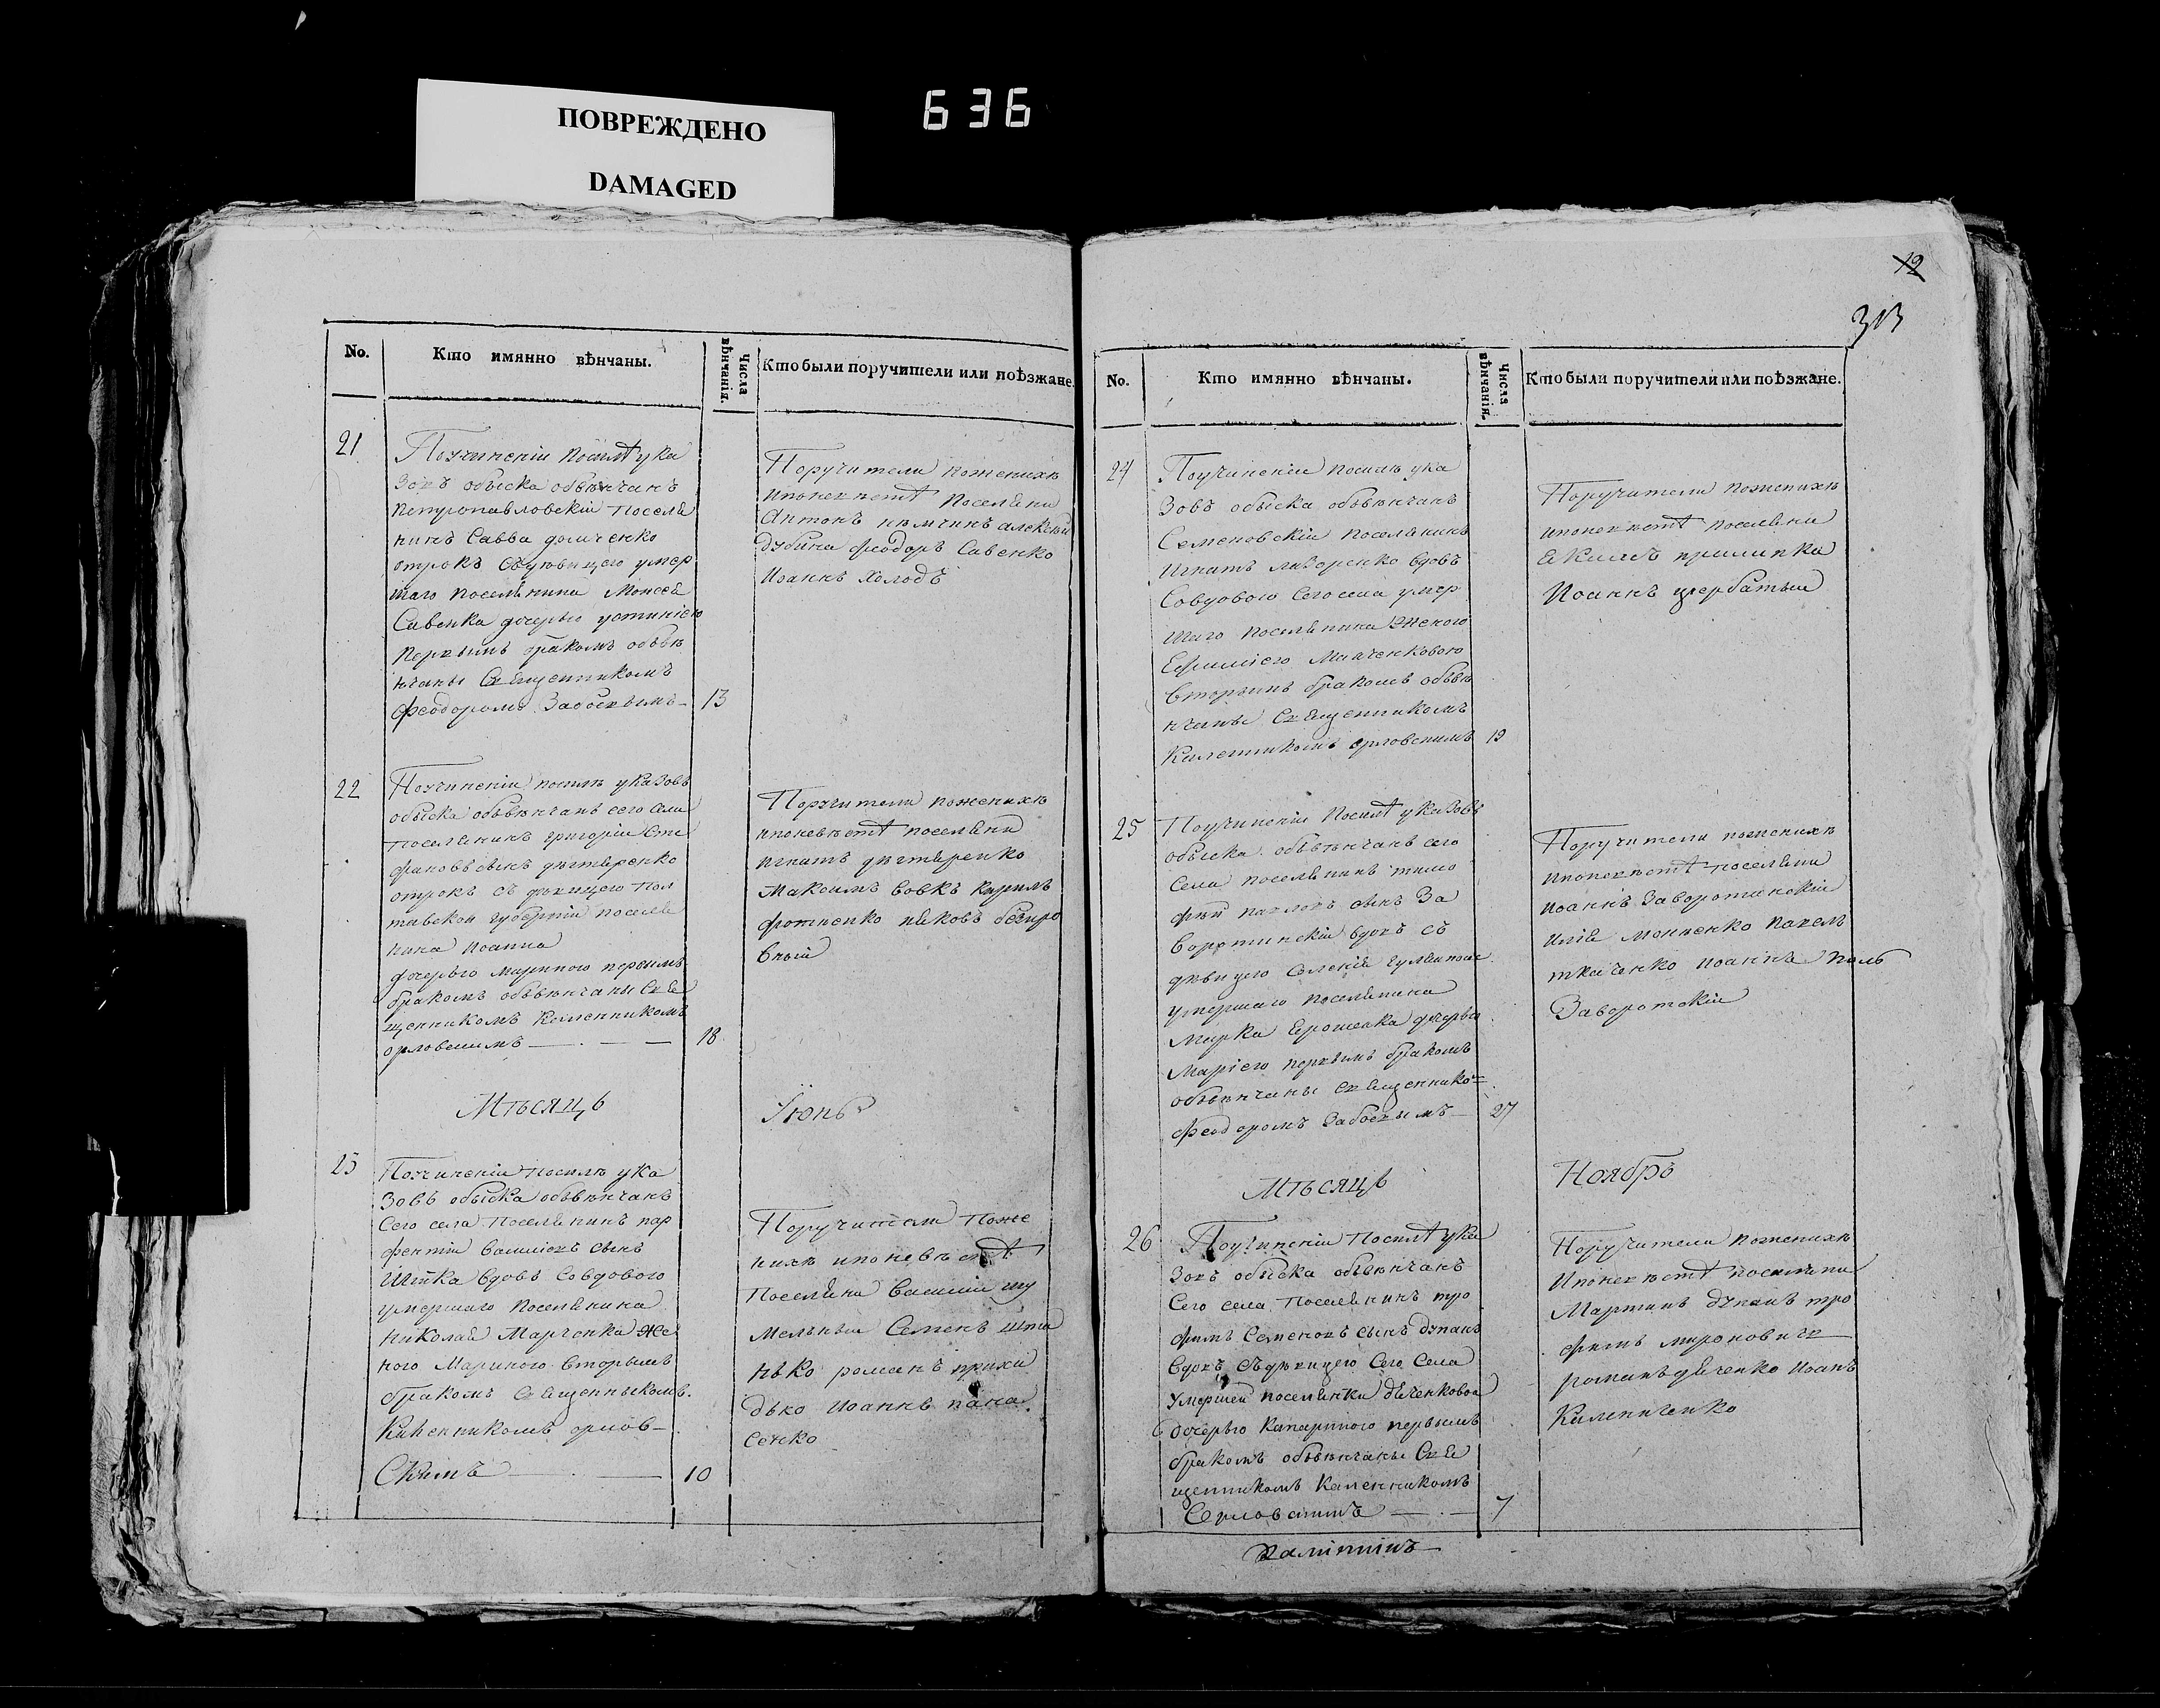 ПОВРЕЖДЕНО
DAMAGED
636
No.
Кто имянно вѣнчаны.
Числа вѣнчанія.
Кто были поручители или поѣзжане.
21
По учиненіи посилѣ ука
зовъ обыска обвѣнчанъ
петропавловскій поселя
нинъ Савва
отрокъ умер
шаго поселянина Моисея
Савенка дочерью устиніею
первымъ бракомъ обвѣ
нчаны Священникомъ
Феодоромъ 13
Поручители по женихѣ
и по невѣстѣ поселяни
Антонъ нѣмчинъ алексѣй
дубина феодоръ Савенко
Иоаннъ холодъ
22
По учиненіи посилѣ указовъ
обыска обвѣнчанъ сего села
поселянинъ григорій Сте
фановъ сынъ дѣхтяренко
отрокъ съ дѣвицею пол
тавской губерніи поселя
нина Иоанна
дочерью Мариною первымъ
бракомъ обвѣнчаны Свя
щенникомъ Каленникомъ
орловскимъ 18
Поручители по женихѣ
и по невѣстѣ поселяни
игнатъ дѣхтяренко
Максимъ вовкъ кирилъ
яковъ
Мѣсяцъ Іюнь
23
По учиненіи посилѣ ука
зовъ обыска обвѣнчанъ
Сего села поселянинъ пар
фентій василіевъ сынъ
вдовъ совдовою
умершаго поселянина
николая Марченка же
ною Мариною вторымъ
бракомъ Священникомъ
Каленникомъ орлов
Скимъ 10
Поручители по же
нихѣ и по невѣстѣ
поселяни василій шу
Семенъ
романъ прихо
дько Иоаннъ пана
сенко
12
313
No.
Кто имянно вѣнчаны.
Числа вѣнчанія.
Кто были поручители или поѣзжане.
24
По учиненіи посилѣ ука
зовъ обыска обвѣнчанъ
Семеновскій поселянинъ
Игнатъ лазоренко вдовъ
Совдовою Сего села умер
шаго поселянина женою
Ефиміею
вторымъ бракомъ обвѣ
нчаны Священникомъ
Каленникомъ орловскимъ 19
Поручители по женихѣ
и по невѣстѣ поселяни
Екимъ прилипка
Иоаннъ щербатый
25
По учиненіи посилѣ указовъ
обыска обвѣнчанъ сего
села поселянинъ тимо
фѣй павловъ сынъ За
воротинскій вдовъ съ
дѣвицею
умершаго поселянина
Марка Ерошенка дочерью
Маріею первымъ бракомъ
обвѣнчаны Священнико
Феодоромъ 27
Поручители по женихѣ
и по невѣстѣ поселяни
Иоаннъ Заворотинскій
Илія павелъ
ткаченко Иоаннъ
Мѣсяцъ Ноябрь
26
По учиненіи посилѣ ука
зовъ обыска обвѣнчанъ
Сего села поселянинъ тро
фимъ Семеновъ сынъ
вдовъ съ дѣвицею Сего Села
умершей поселянки
дочерью первымъ
бракомъ обвѣнчаны Свя
щенникомъ Каленникомъ
Орловскимъ 7
Поручители по женихѣ
и по невѣстѣ поселяни
Мартинъ тро
фимъ мироновичъ
романъ Иоанъ
Калениченко